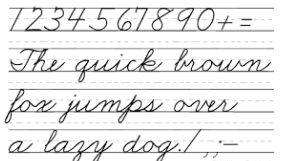 1234567890+=
The quick brown
fox jumps over
a lazy dog./,;–